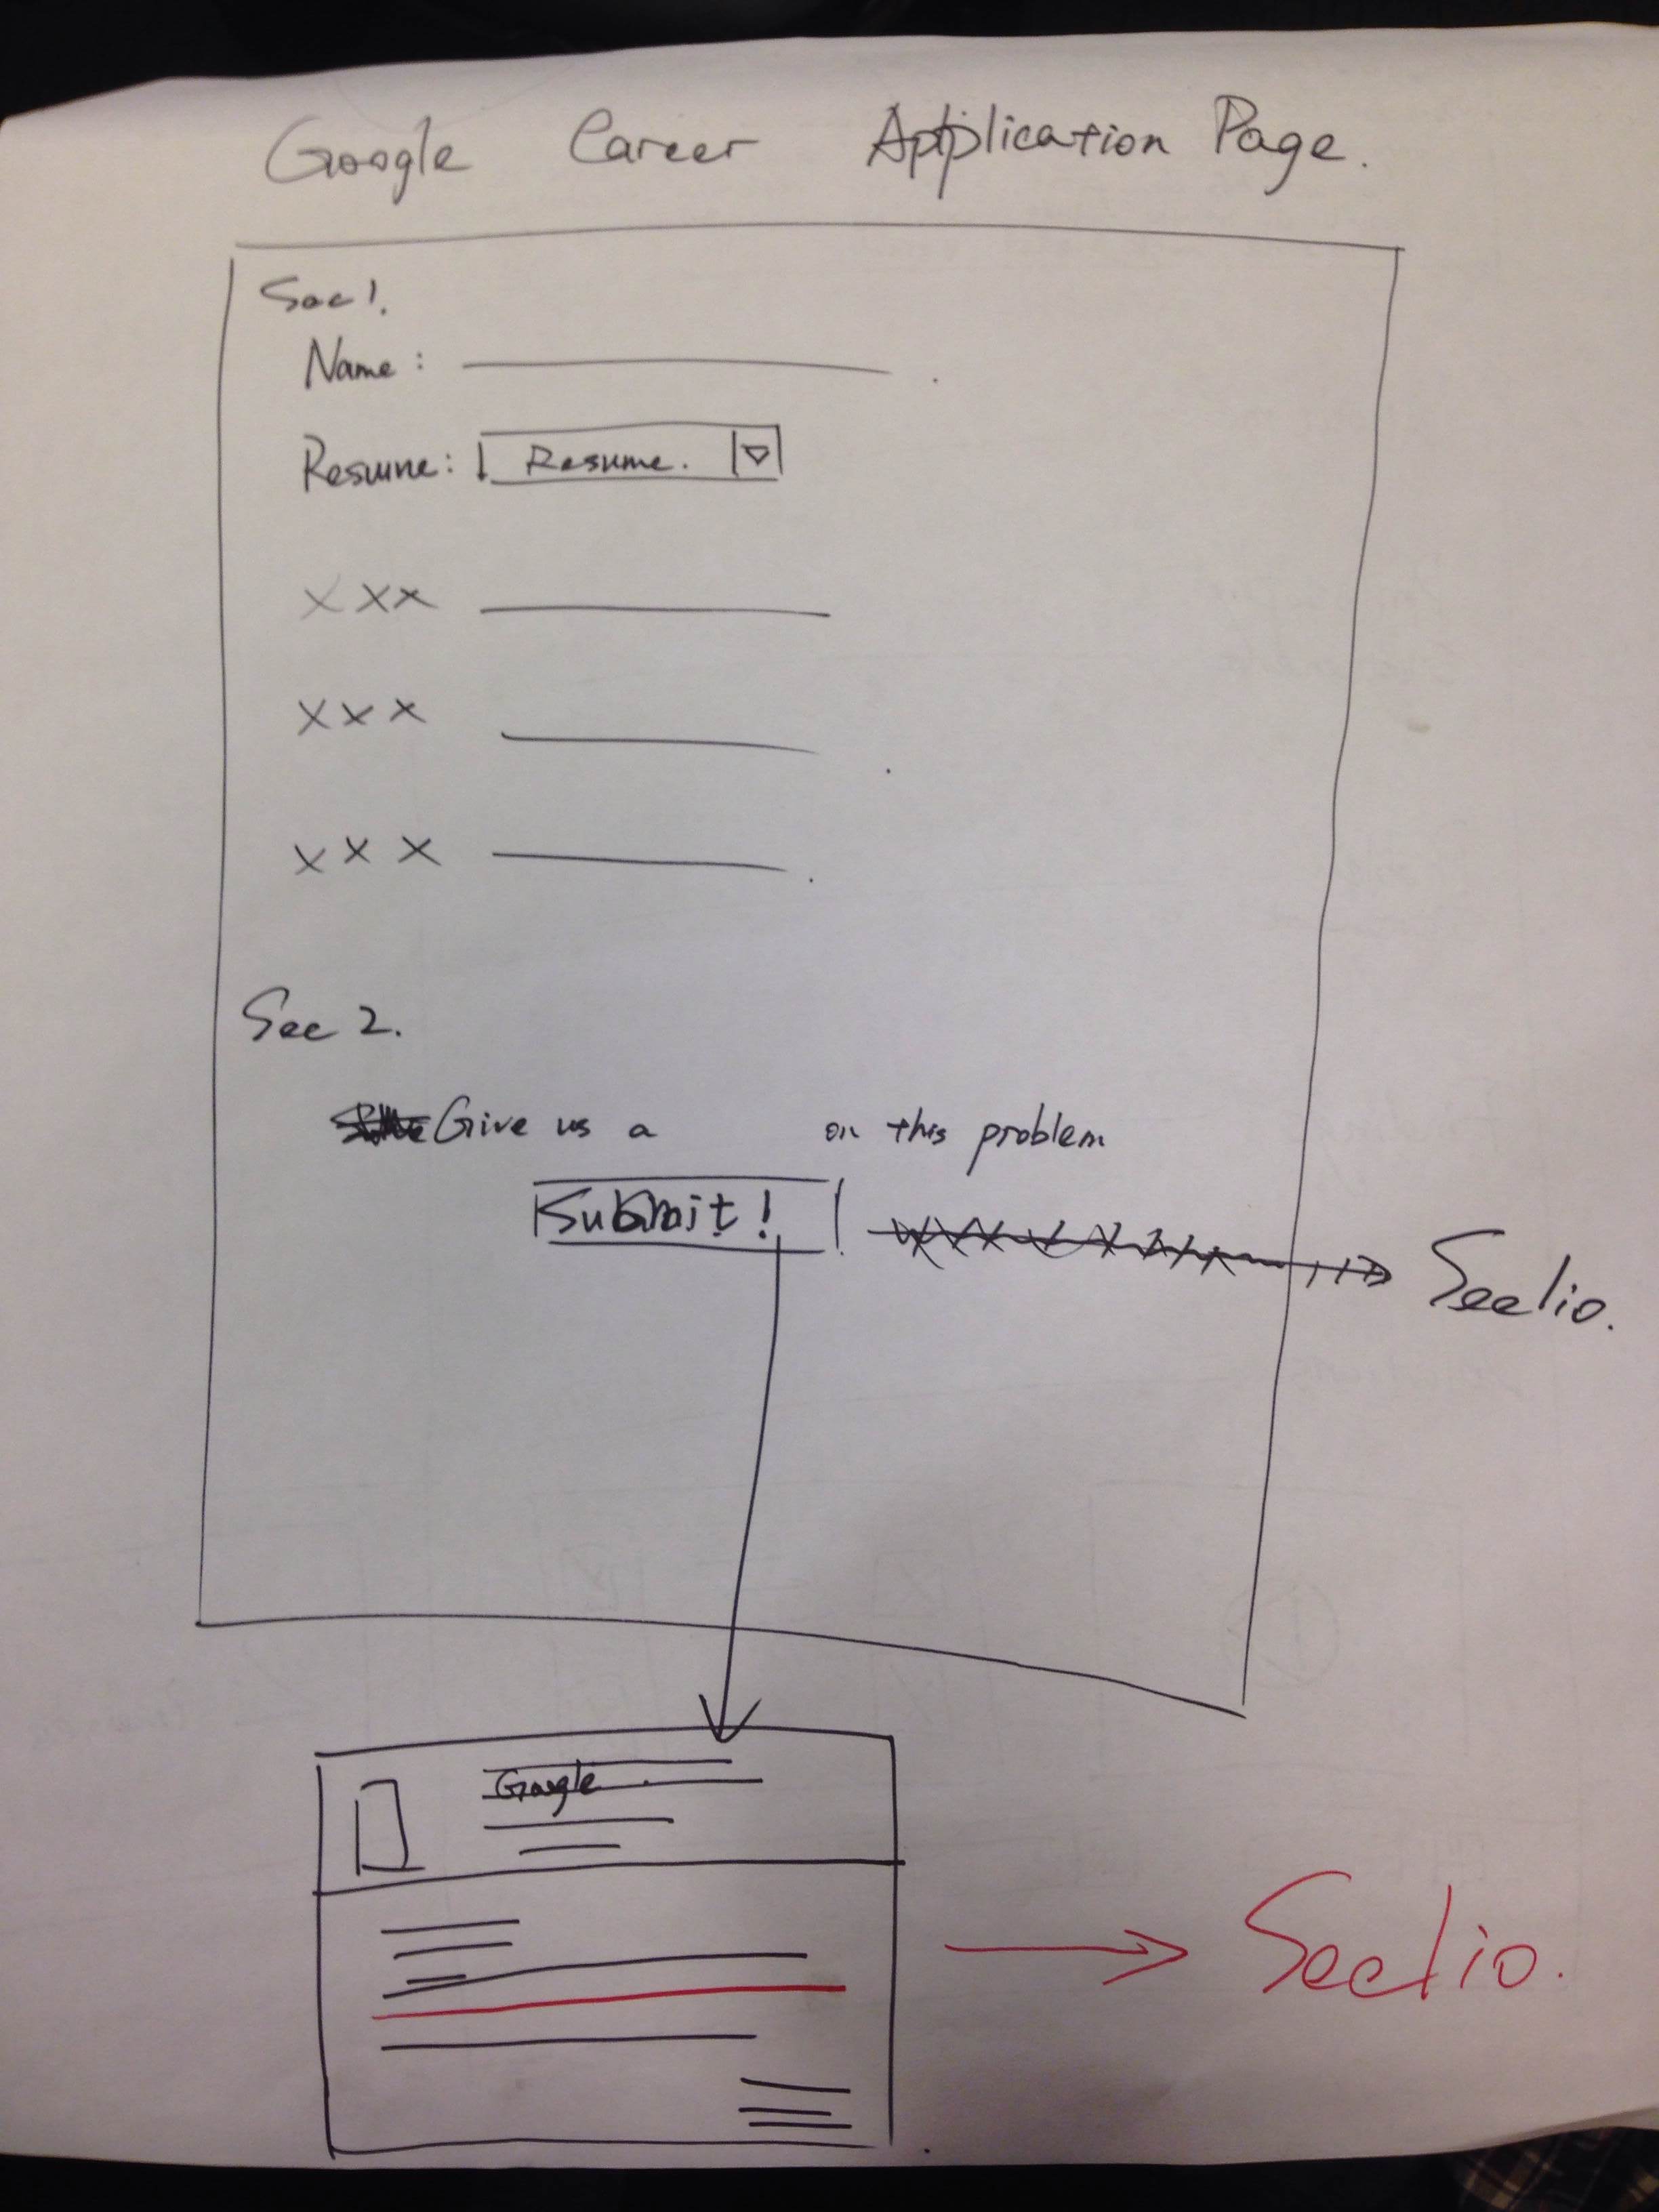 Google Career Application Page.
Sec 1.
Name :
Resume: Resume.
x x x
x x x
x x x
Sec 2.
Give us a on this problem
Submit!
Seelio.
Google
Seelio.